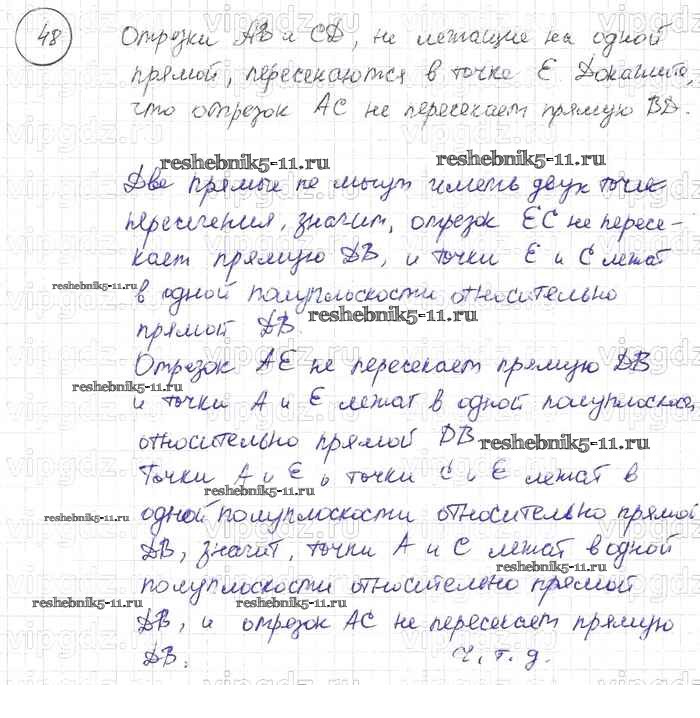 48 Отрезки AB и CD, не лежащие на одной
прямой, пересекаются в точке E Докажите,
что отрезок AC не пересекает прямую BD.
reshebnik5-11.ru reshebnik5-11.ru
Две прямые не могут иметь двух точек
пересечения, значит, отрезок EC не пересе-
кает прямую DB, и точки E и C лежат
reshebnik5-11.ru
в одной полуплоскости относительно
прямой DB. reshebnik5-11.ru
Отрезок AE не пересекает прямую DB
reshebnik5-11.ru
и точки A и E лежат в одной полуплоскос.
относительно прямой DB reshebnik5-11.ru
Точки A и E, и точки C и E лежат в
reshebnik5-11.ru
одной полуплоскости относительно прямой
reshebnik5-11.ru
DB, значит, точки A и C лежат в одной
reshebnik5-11.ru
полуплоскости относительно прямой
reshebnik5-11.ru reshebnik5-11.ru
DB, и отрезок AC не пересекает прямую
DB. ч.т.д.
reshebnik5-11.ru reshebnik5-11.ru